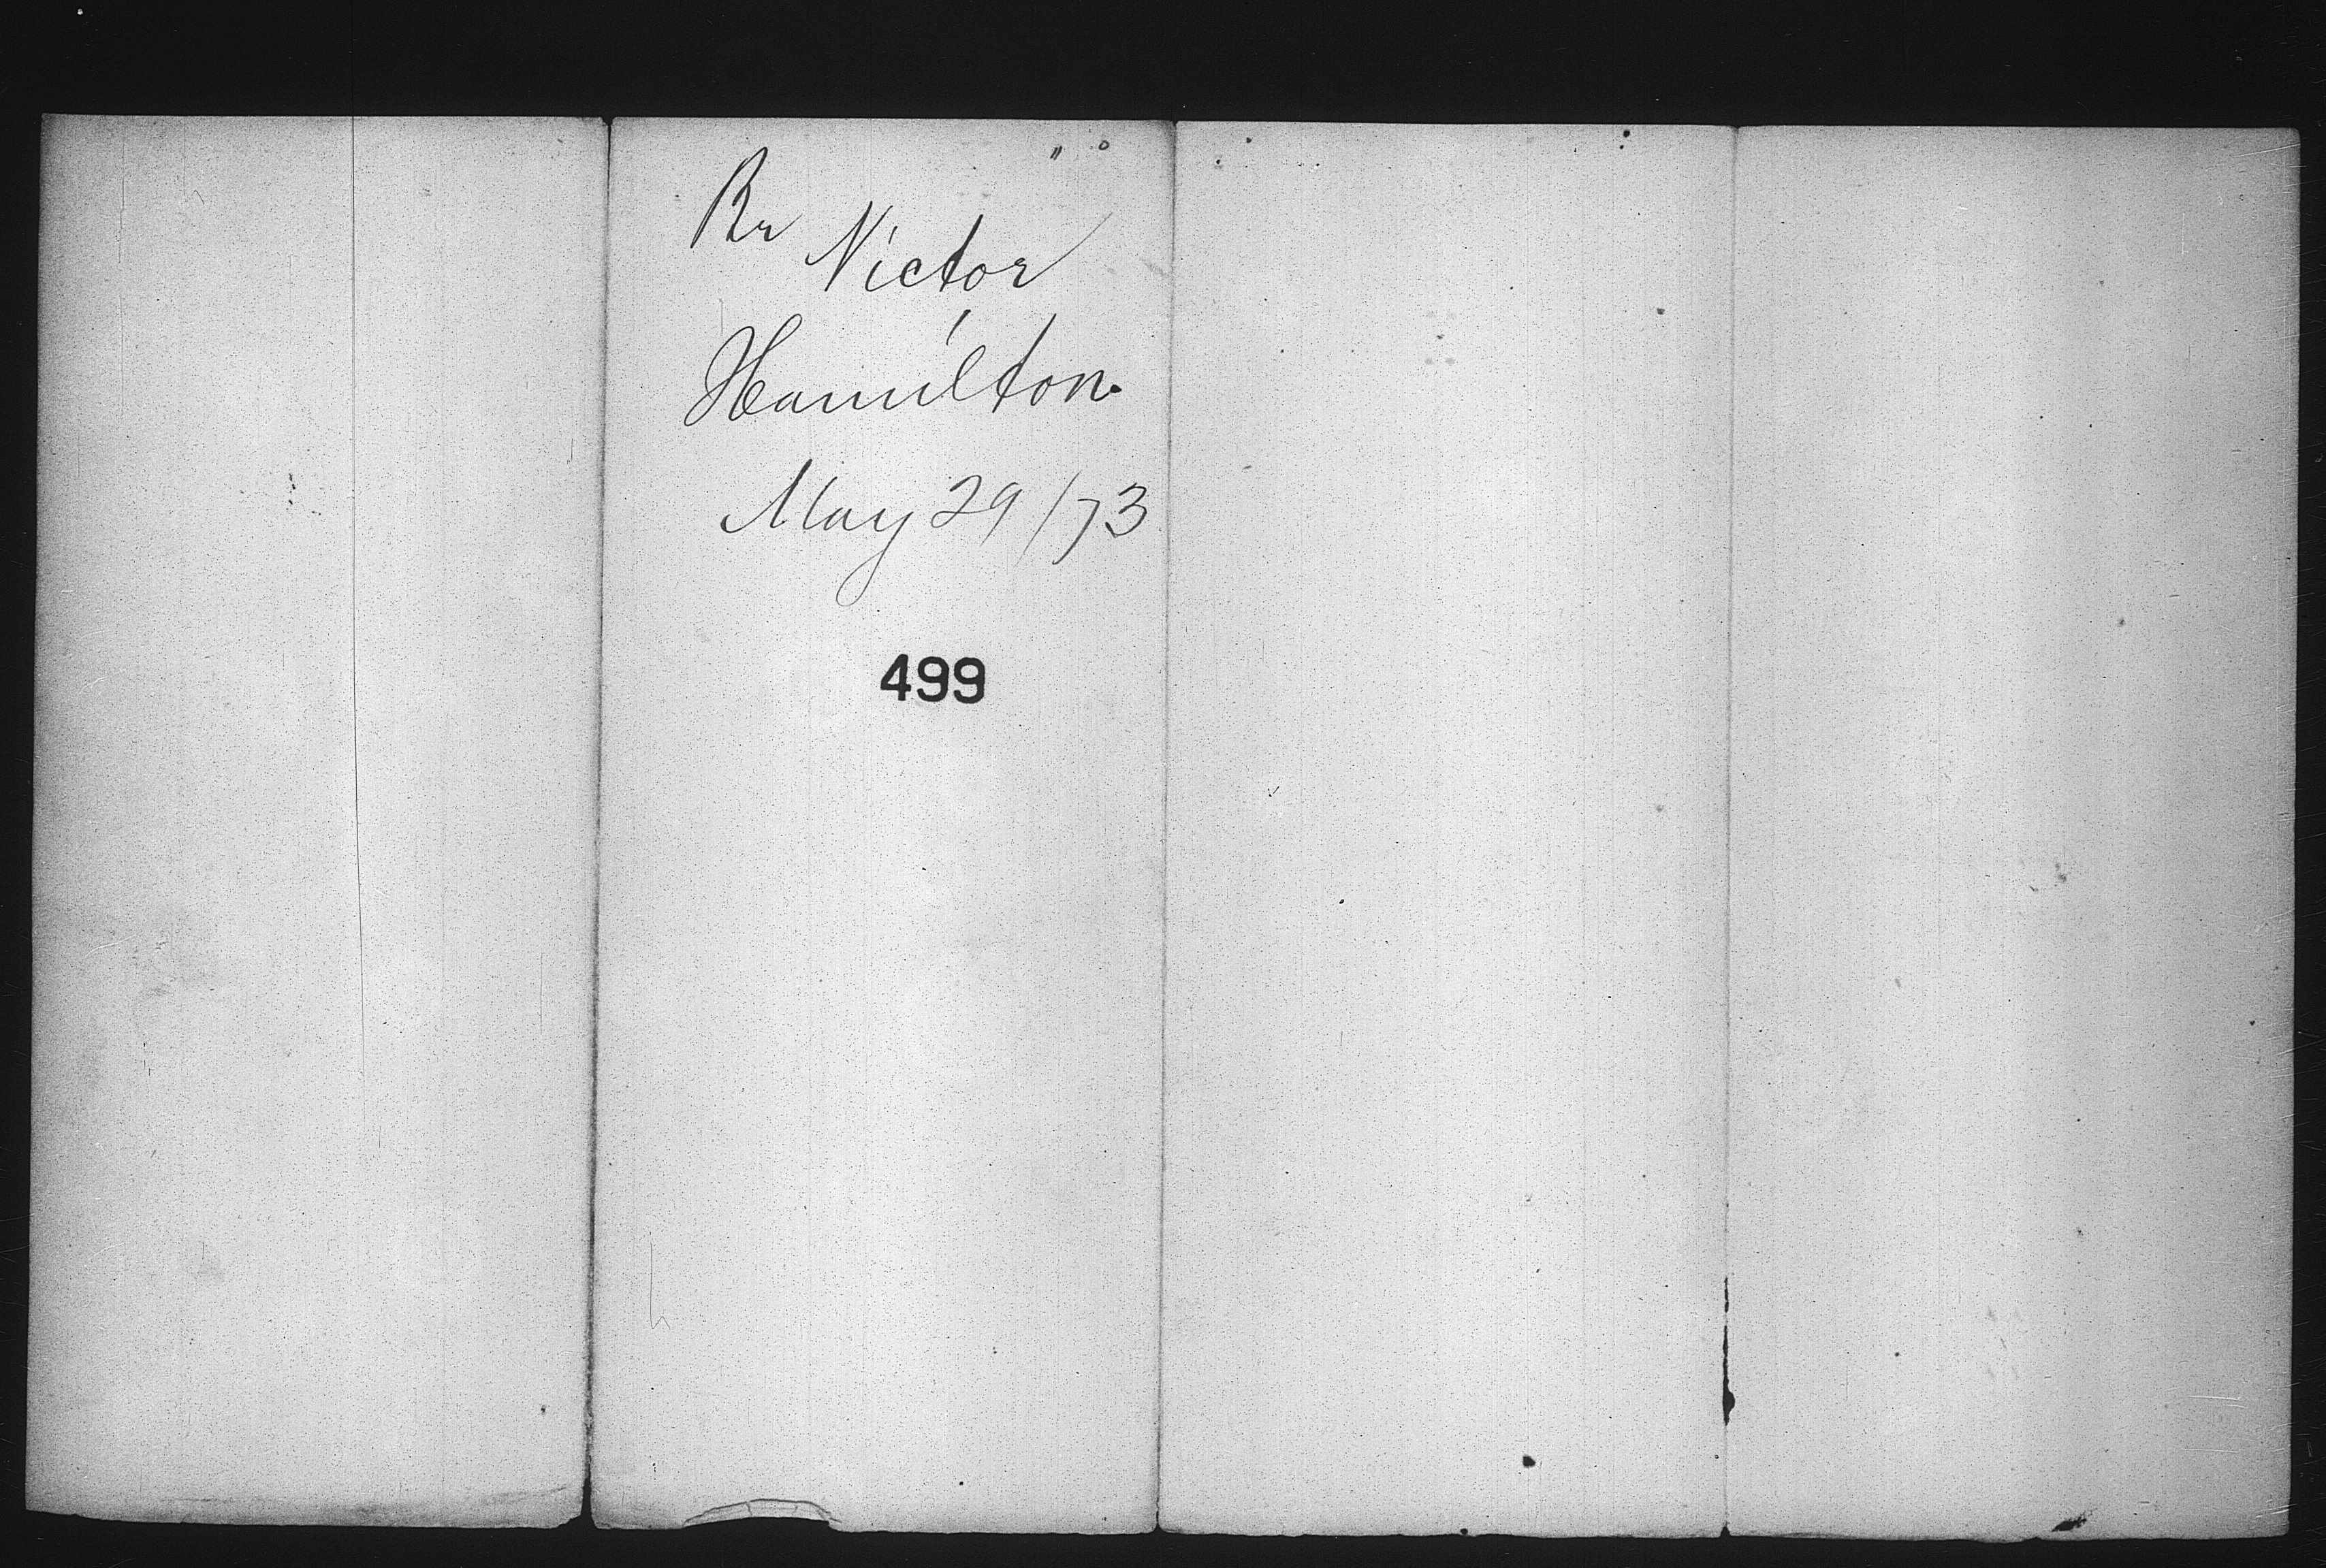 Br
Victor
Hamilton.
May 29/73
499